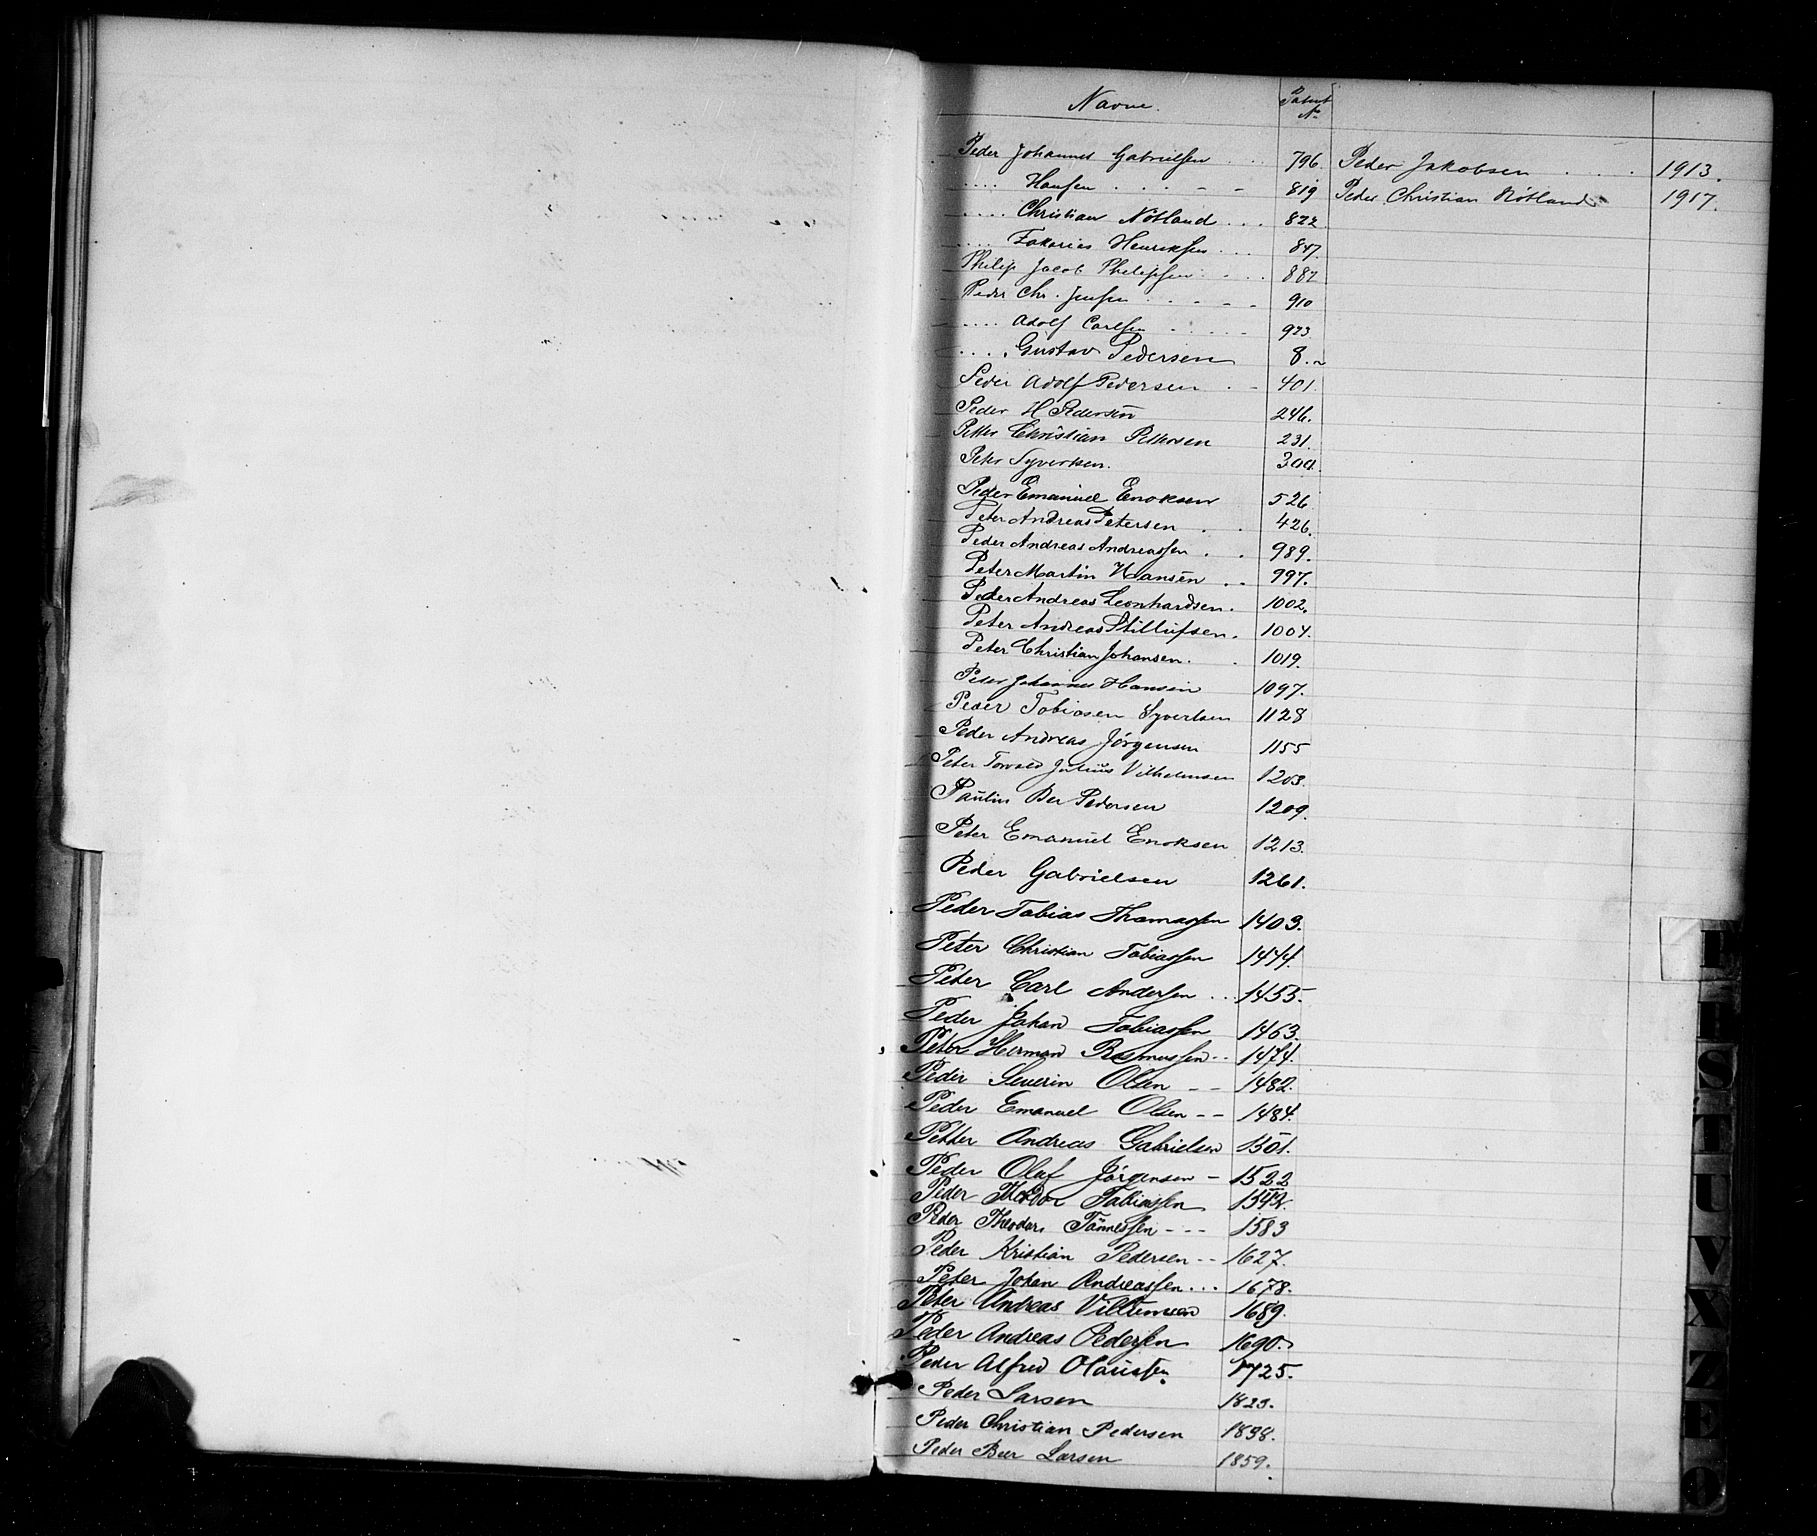 Navne. Patent No
Peder Johannes Gabrielsen . . . 796. Peder Jakobsen . . . . 1913.
.... Hansen . . . - - 819 Peder Christian Nötland 1917.
.... Christian Nötland . . . 822.
.... Zakarias Henriksen . . . 847.
Philip Jacob Philipsen . . . 887
Peder Chr. Jensen . . - - - 910
.... Adolf Carlsen . . . . . 923.
.... Gustav Pedersen 8.
Peder Adolf Pedersen . - 401.
Peder H Pedersen 246.
Petter Christian Pettersen 231.
Peter Syvertsen. 300.
Peder Emanuel Enoksen 526
Peter Andreas Petersen . . 426.
Peder Andreas Andreassen . . 989.
Peter Martin Hansen . . 997.
Peder Andreas Leonhardsen. 1002.
Peter Andreas Stillufsen. 1004.
Peter Christian Johansen. . 1019.
Peter Johannes Hansen 1097.
Peder Tobiasen Syvertsen 1128
Peder Andreas Jörgensen 1155
Peter Torvald Julius Vilhelmsen 1203.
Paulin Ber Pedersen 1209.
Peter Emanuel Enoksen 1213.
Peder Gabrielsen 1261.
Peder Tobias Thomassen 1403.
Peter Christian Tobiassen 1444.
Peter Carl Andersen . . . 1455.
Peder Johan Tobiassen 1463.
Peter Herman Rasmussen - - 1474.
Peder Severin Olsen - - 1482.
Peder Emanuel Olsen - - 1484.
Petter Andreas Gabrielsen 1501.
Peder Olaf Jörgensen - 1522
Peder Tobiassen 1542.
Peder Theodor Tönnessen - - - 1583
Peder Kristian Pedersen - - 1627.
Peter Johan Andreassen . . . 1678.
Peter Andreas Villumsen 1689.
Peder Andreas Pedersen 1690.
Peder Alfred Olaussen. 1725.
Peder Larsen 1823.
Peder Christian Pedersen 1838.
Peder Beer Larsen 1859.
R
S
T
U
V
X
Z
Æ
Ø